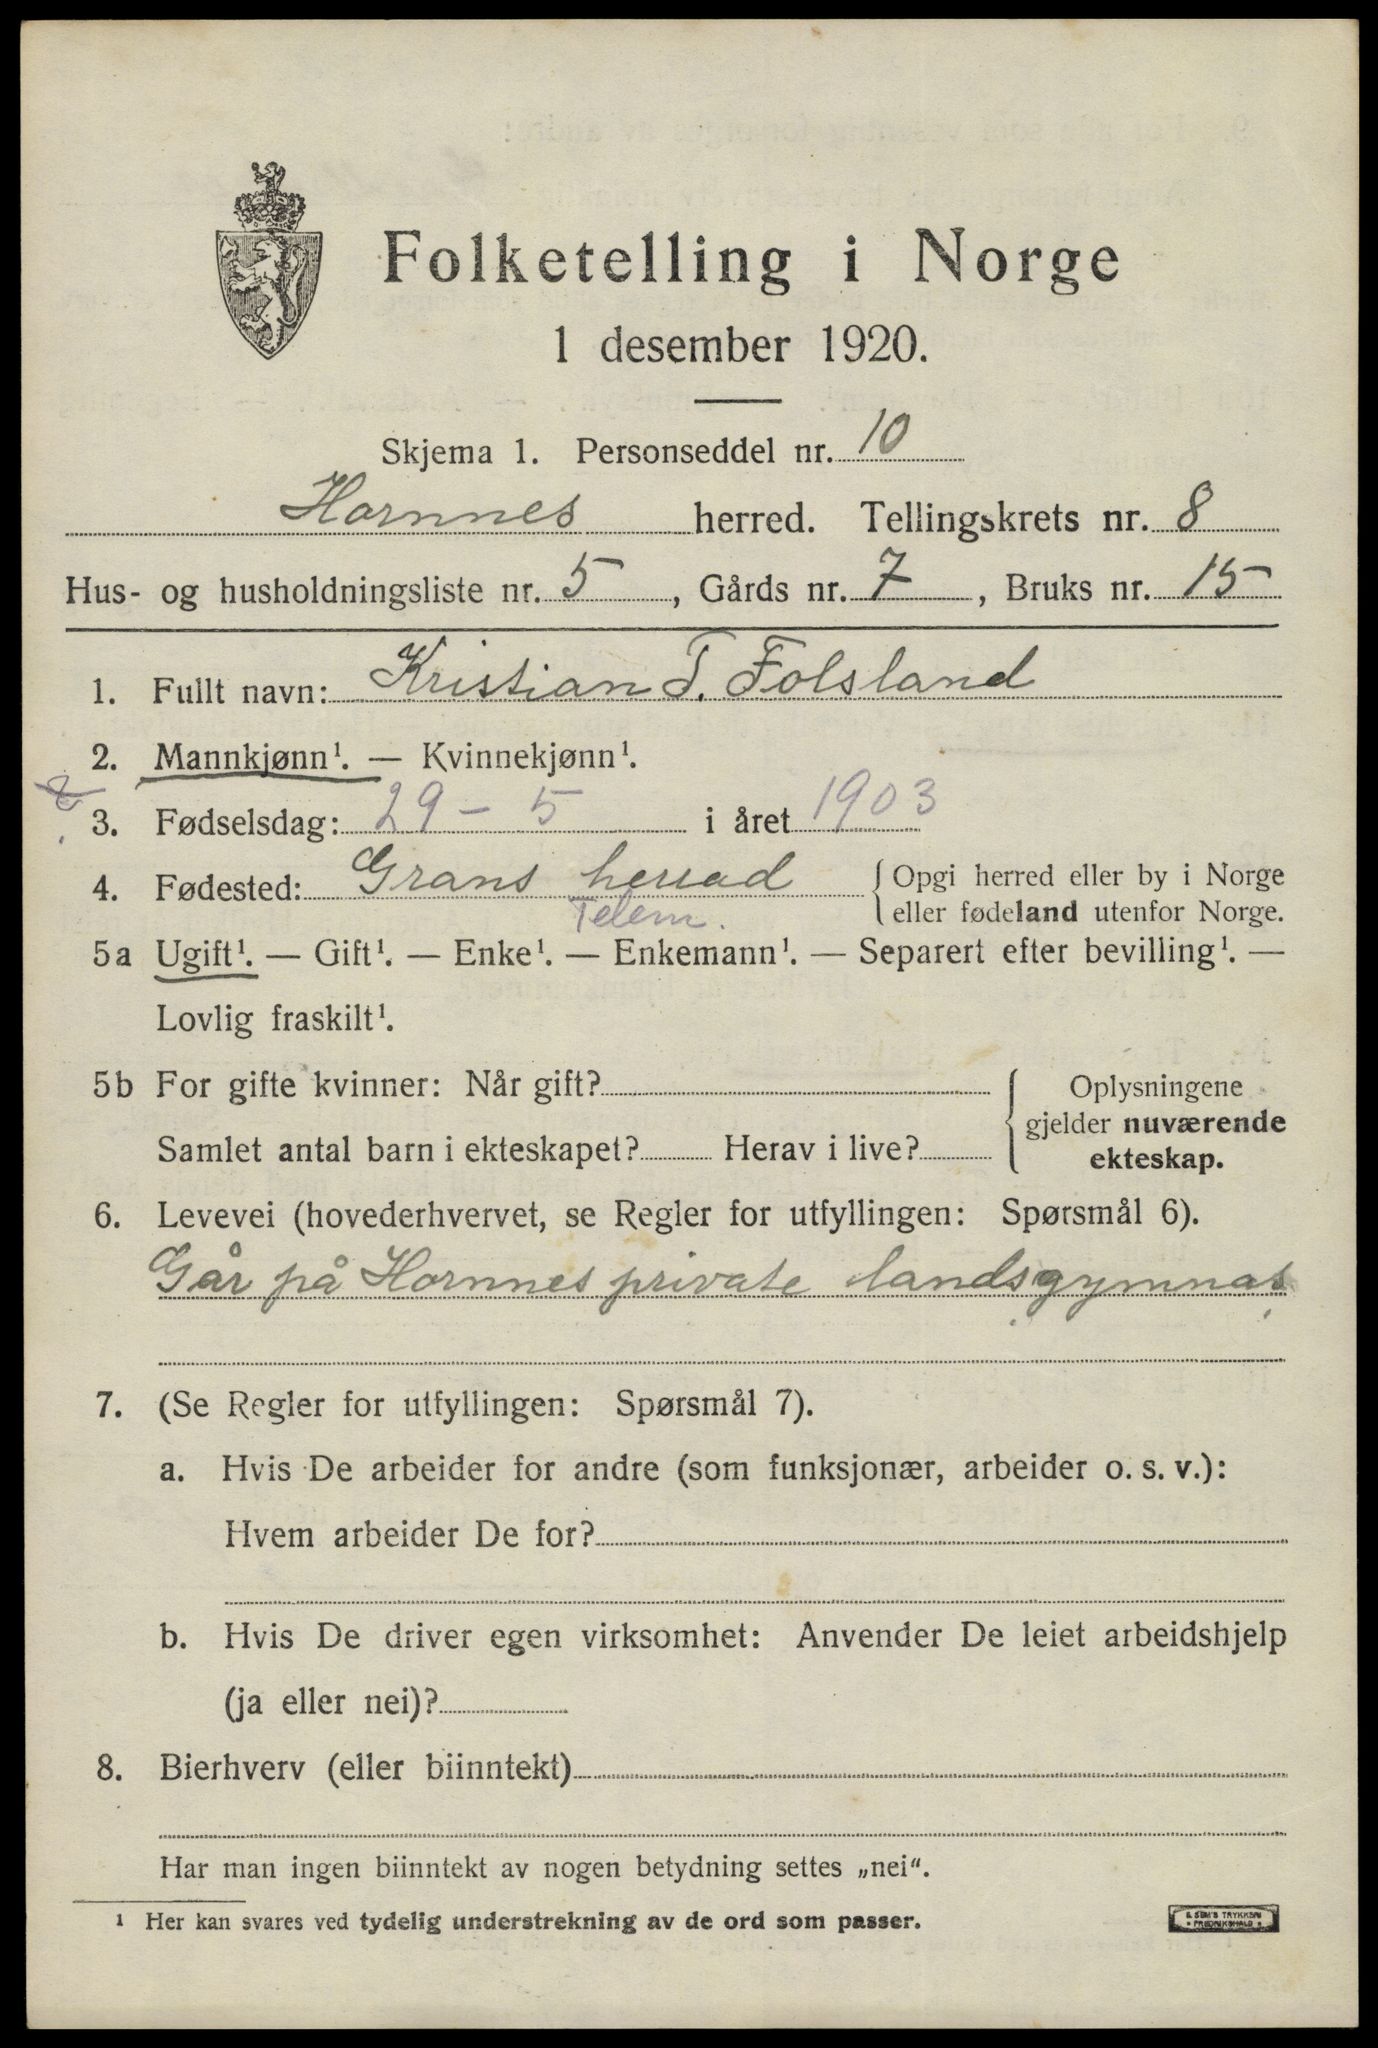 Folketelling i Norge
1 desember 1920.
Skjema 1. Personseddel nr. 10
Hornnes herred. Tellingskrets nr. 8
Hus- og husholdningsliste nr. 5, Gårds nr. 7, Bruks nr. 15
1. Fullt navn: Kristian T. Folsland
2. Mannkjønn¹. — Kvinnekjønn¹.
3. Fødselsdag: 29 - 5 i året 1903
4. Fødested: Grans herrad { Opgi herred eller by i Norge
Telem. eller fødeland utenfor Norge.
5a Ugift¹. — Gift¹. — Enke¹. — Enkemann¹. — Separert efter bevilling¹. —
Lovlig fraskilt¹.
5b For gifte kvinner: Når gift? { Oplysningene
gjelder nuværende
Samlet antal barn i ekteskapet? Herav i live? ekteskap.
6. Levevei (hovederhvervet, se Regler for utfyllingen: Spørsmål 6).
Går på Hornnes private landsgymnas
7. (Se Regler for utfyllingen: Spørsmål 7).
a. Hvis De arbeider for andre (som funksjonær, arbeider o. s. v.):
Hvem arbeider De for?
b. Hvis De driver egen virksomhet: Anvender De leiet arbeidshjelp
(ja eller nei)?
8. Bierhverv (eller biinntekt)
Har man ingen biinntekt av nogen betydning settes „nei“.
¹ Her kan svares ved tydelig understrekning av de ord som passer.
E. SEM'S TRYKKERI
FREDRIKSHALD